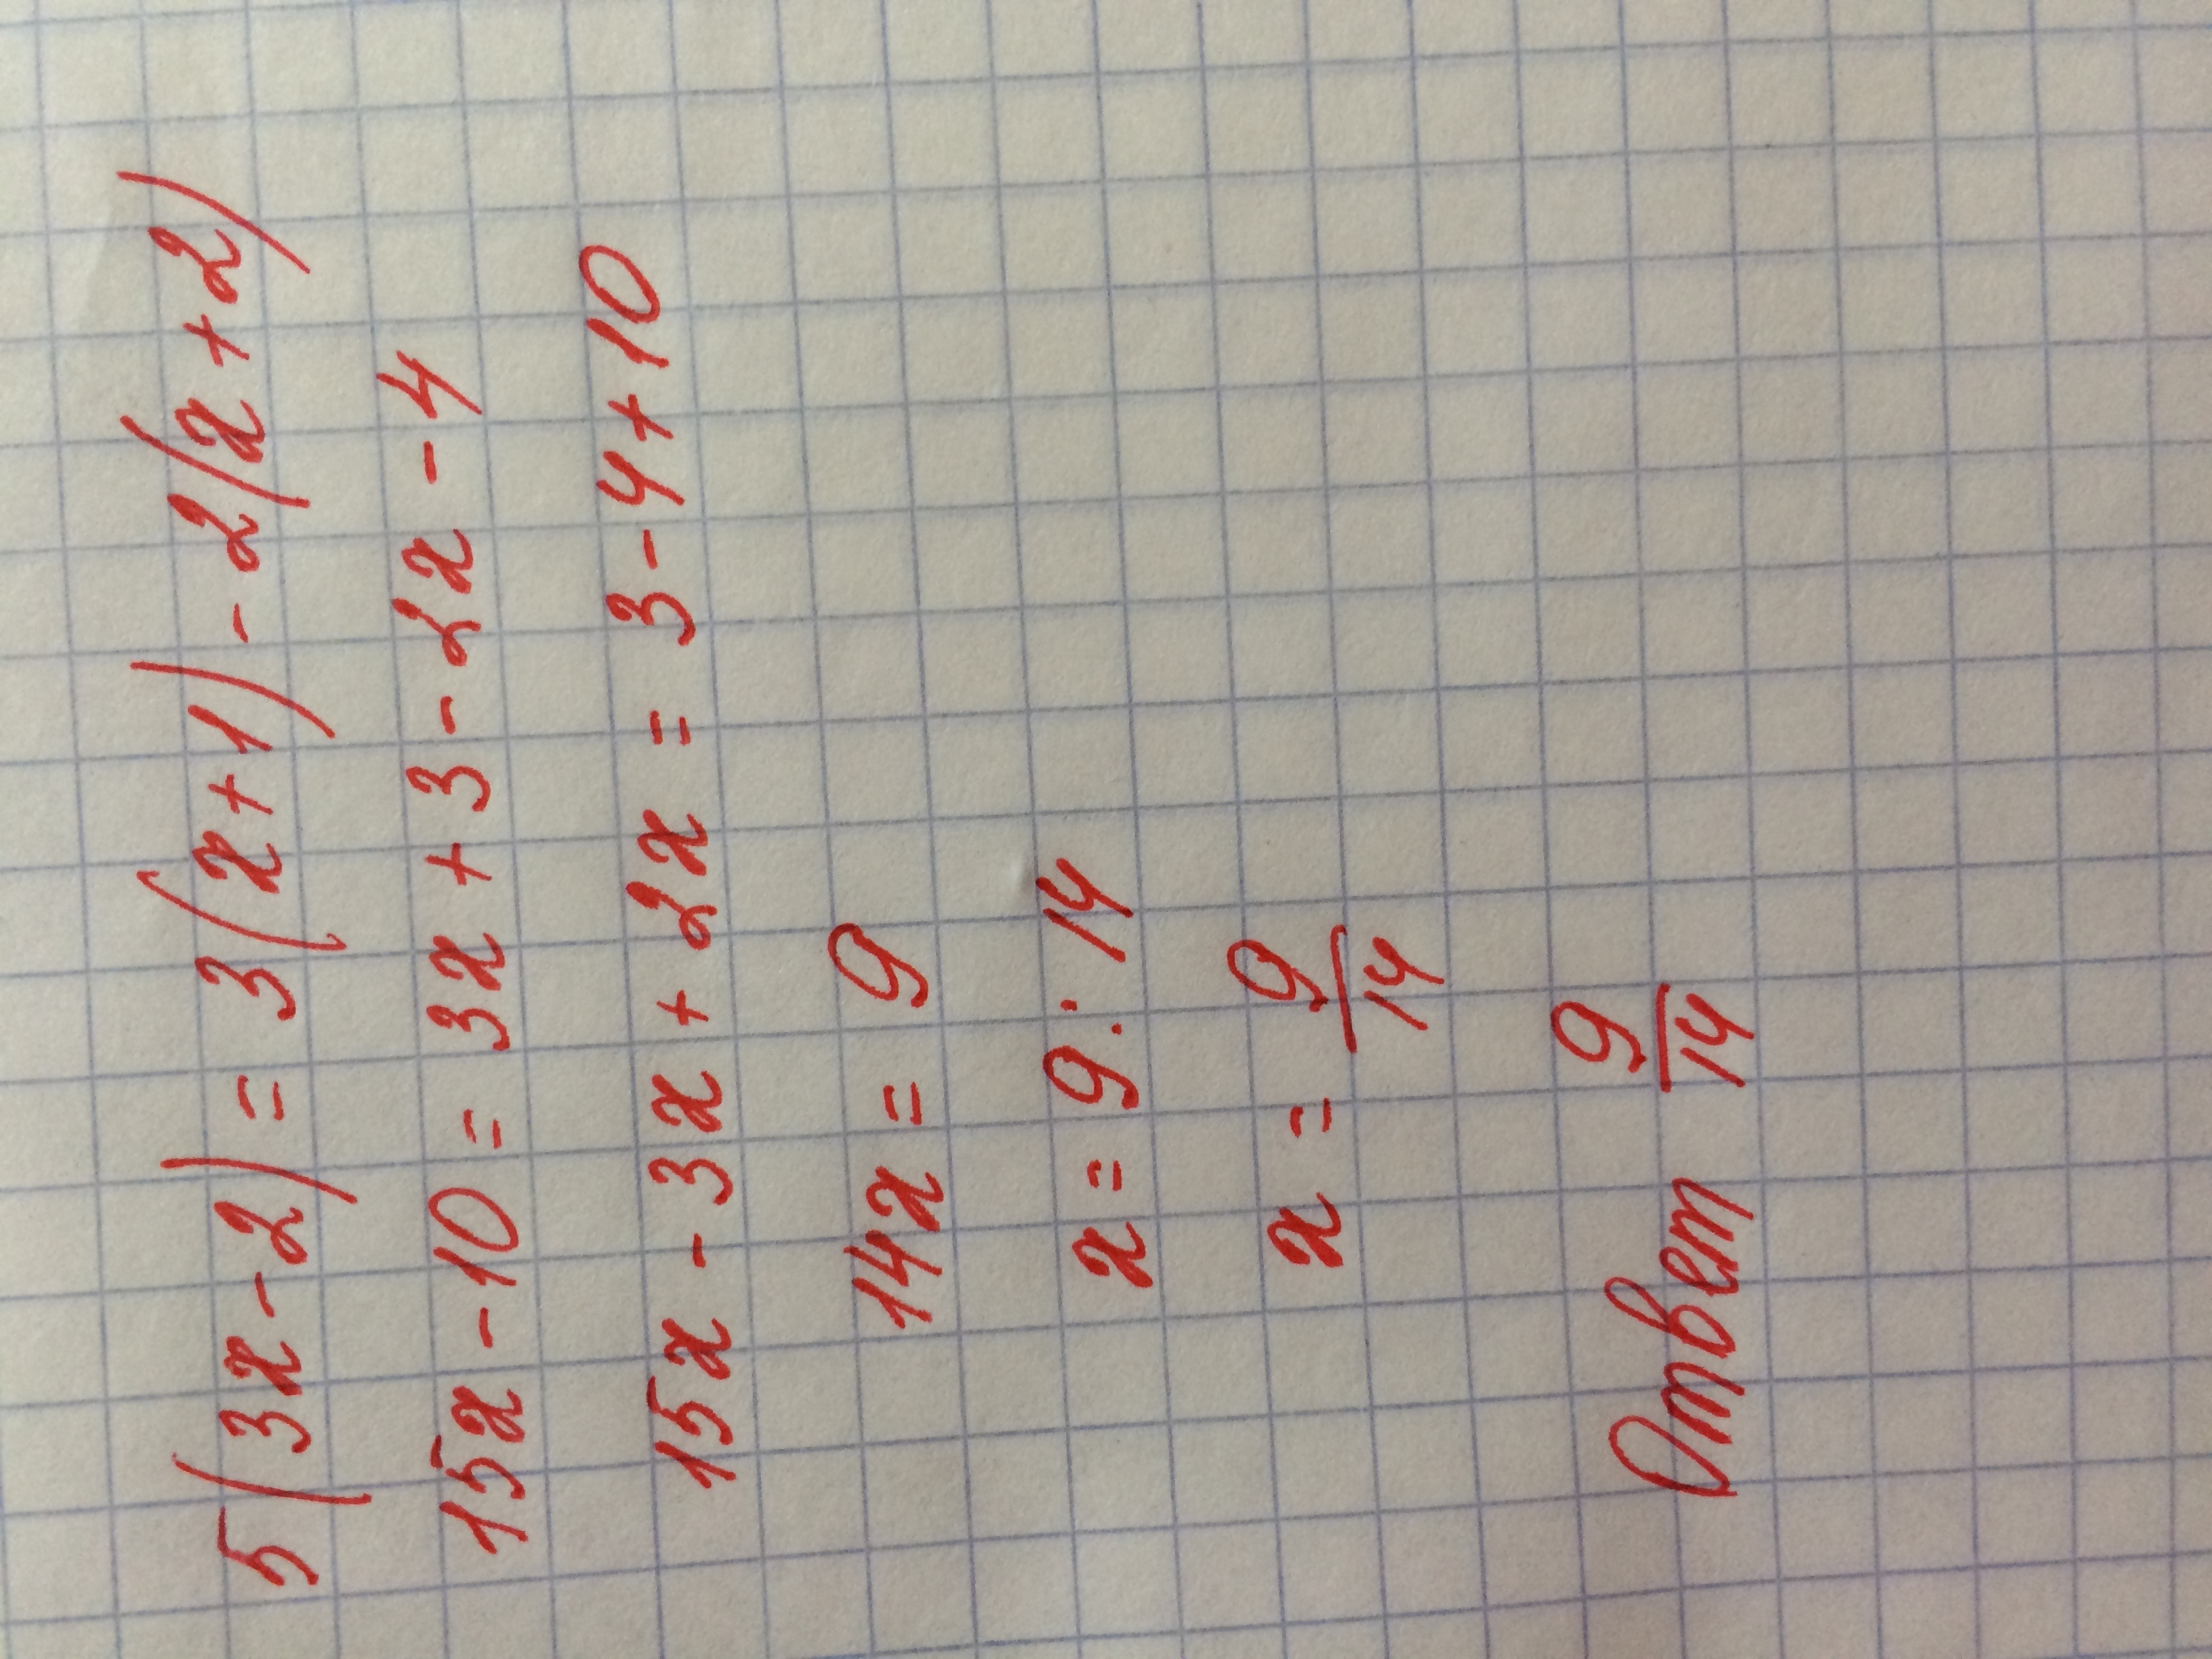 5(3x-2) = 3(x+1) - 2(x+2)
15x - 10 = 3x + 3 - 2x - 4
15x - 3x + 2x = 3 - 4 + 10
14x = 9
x = 9 : 14
x = 9/14
Ответ 9/14